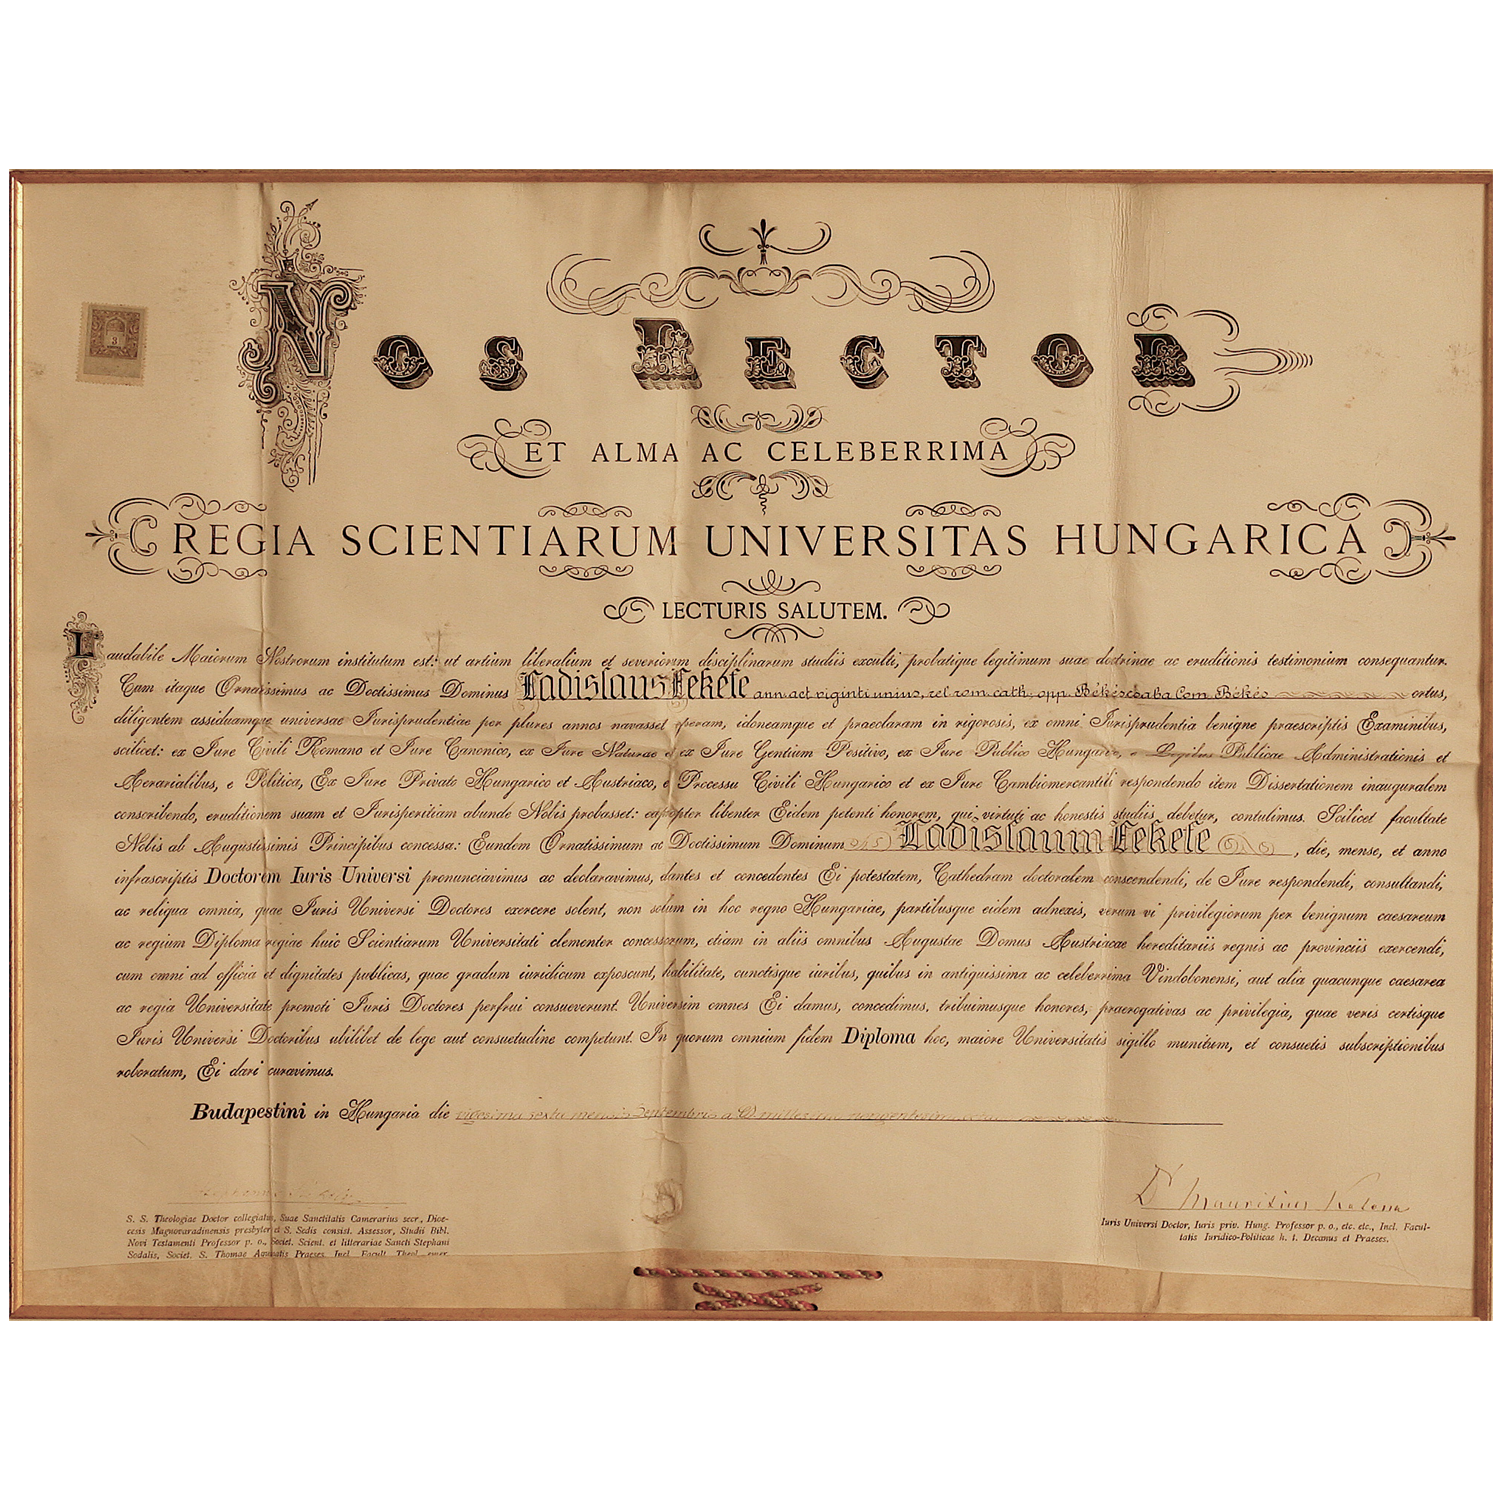 3
NOS RECTOR
ET ALMA AC CELEBERRIMA
REGIA SCIENTIARUM UNIVERSITAS HUNGARICA
LECTURIS SALUTEM.
Laudabile Maiorum Nostrorum institutum est: ut artium liberalium et severiorum disciplinarum studiis exculti, probatique legitimum suae doctrinae ac eruditionis testimonium consequantur.
Cum itaque Ornatissimus ac Doctissimus Dominus Ladislaus Fekete ann. act. viginti unius, rel. rom. cath., opp. Békéscsaba Com. Békés ortus,
diligentem assiduamque universae Jurisprudentiae per plures annos navasset operam, idoneamque et praeclaram in rigorosis, ex omni Jurisprudentia benigne praescriptis Examinibus,
scilicet: ex Jure Civili Romano et Jure Canonico, ex Jure Naturae et ex Jure Gentium Positivo, ex Jure Publico Hungarico, e Legibus Publicae Administrationis et
Aerarialibus, e Politica, Ex Jure Privato Hungarico et Austriaco, e Processu Civili Hungarico et ex Jure Cambiomercantili respondendo item Dissertationem inauguralem
conscribendo, eruditionem suam et Jurisperitiam abunde Nobis probasset: eapropter libenter Eidem petenti honorem, qui virtuti ac honestis studiis debetur, contulimus. Scilicet facultate
Nobis ab Augustissimis Principibus concessa: Eundem Ornatissimum ac Doctissimum Dominum Ladislaum Fekete, die, mense, et anno
infrascriptis Doctorem Iuris Universi pronunciavimus ac declaravimus, dantes et concedentes Ei potestatem, Cathedram doctoralem conscendendi, de Jure respondendi, consultandi,
ac reliqua omnia, quae Juris Universi Doctores exercere solent, non solum in hoc regno Hungariae, partibusque eidem adnexis, verum vi privilegiorum per benignum caesareum
ac regium Diploma regiae huic Scientiarum Universitati clementer concessorum, etiam in aliis omnibus Augustae Domus Austriacae hereditariis regnis ac provinciis exercendi,
cum omni ad officia et dignitates publicas, quae gradum iuridicum exposcunt, habilitate, cunctisque iuribus, quibus in antiquissima ac celeberrima Vindobonensi, aut alia quacunque caesarea
ac regia Universitate promoti Juris Doctores perfrui consueverunt. Universim omnes Ei damus, concedimus, tribuimusque honores, praerogativas ac privilegia, quae veris certisque
Juris Universi Doctoribus ubilibet de lege aut consuetudine competunt. In quorum omnium fidem Diploma hoc, maiore Universitatis sigillo munitum, et consuetis subscriptionibus
roboratum, Ei dari curavimus.
Budapestini in Hungaria die vigesima sexta mensis Septembris a. D. millesimo nongentesimo
Dr Mauritius Katona
S. S. Theologiae Doctor collegiatus, Suae Sanctitatis Camerarius secr., Dioe-
cesis Magnovaradinensis presbyter et S. Sedis consist. Assessor, Studii Bibl.
Novi Testamenti Professor p. o., Societ. Scient. et litterariae Sancti Stephani
Sodalis, Societ. S. Thomae Aquinatis Praeses, Incl. Facult. Theol. emer.
Iuris Universi Doctor, Iuris priv. Hung. Professor p. o., etc. etc., Incl. Facul-
tatis Iuridico-Politicae h. t. Decanus et Praeses.